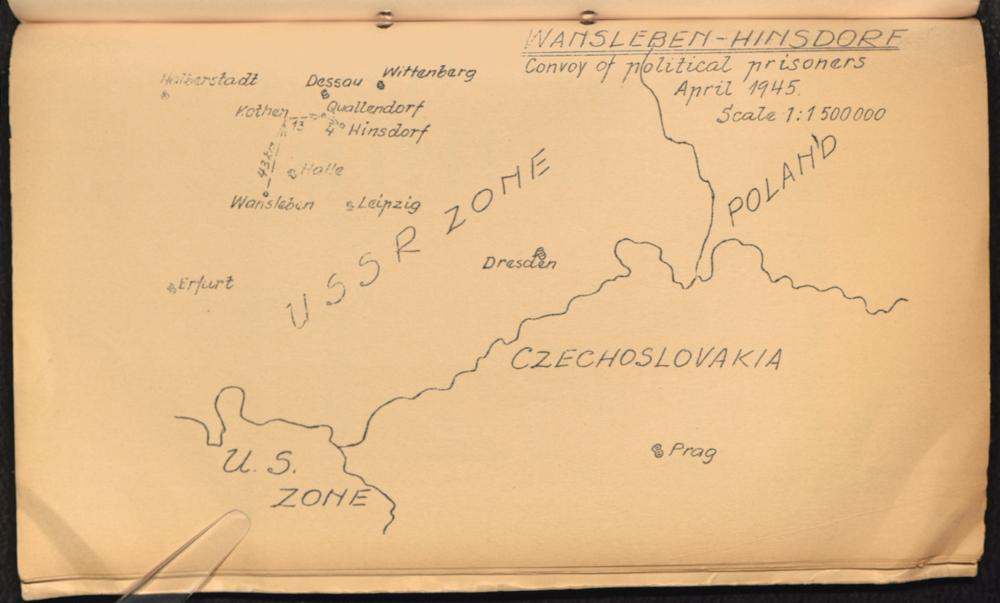 WANSLEBEN-HINSDORF
Convoy of political prisoners
April 1945.
Scale 1:1500000
Halberstadt
Dessau
Wittenberg
Kothen
Quallendorf
13
4
Hinsdorf
43 km
Halle
Wansleben
Leipzig
USSR ZONE
POLAND
Dresden
Erfurt
CZECHOSLOVAKIA
U.S.
ZONE
Prag